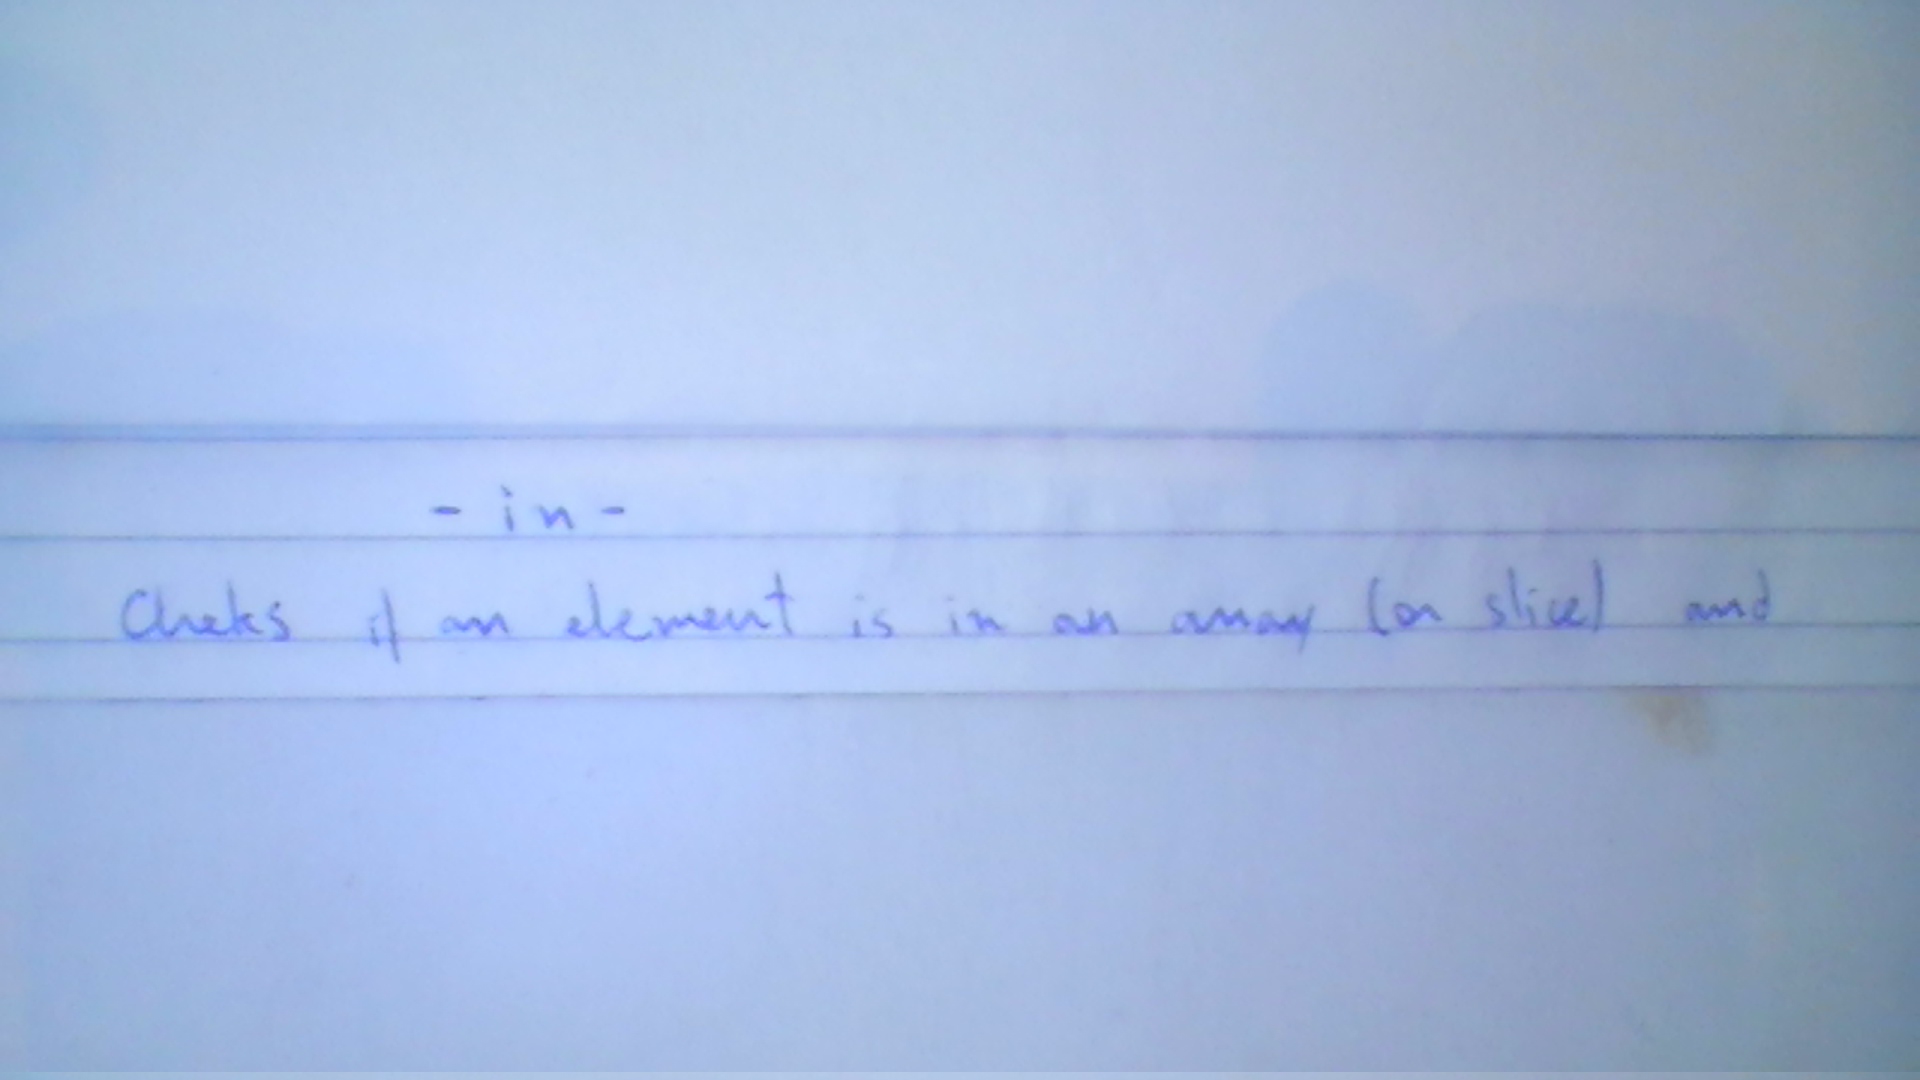 - in -
Cheks if an element is in an array (or slice) and